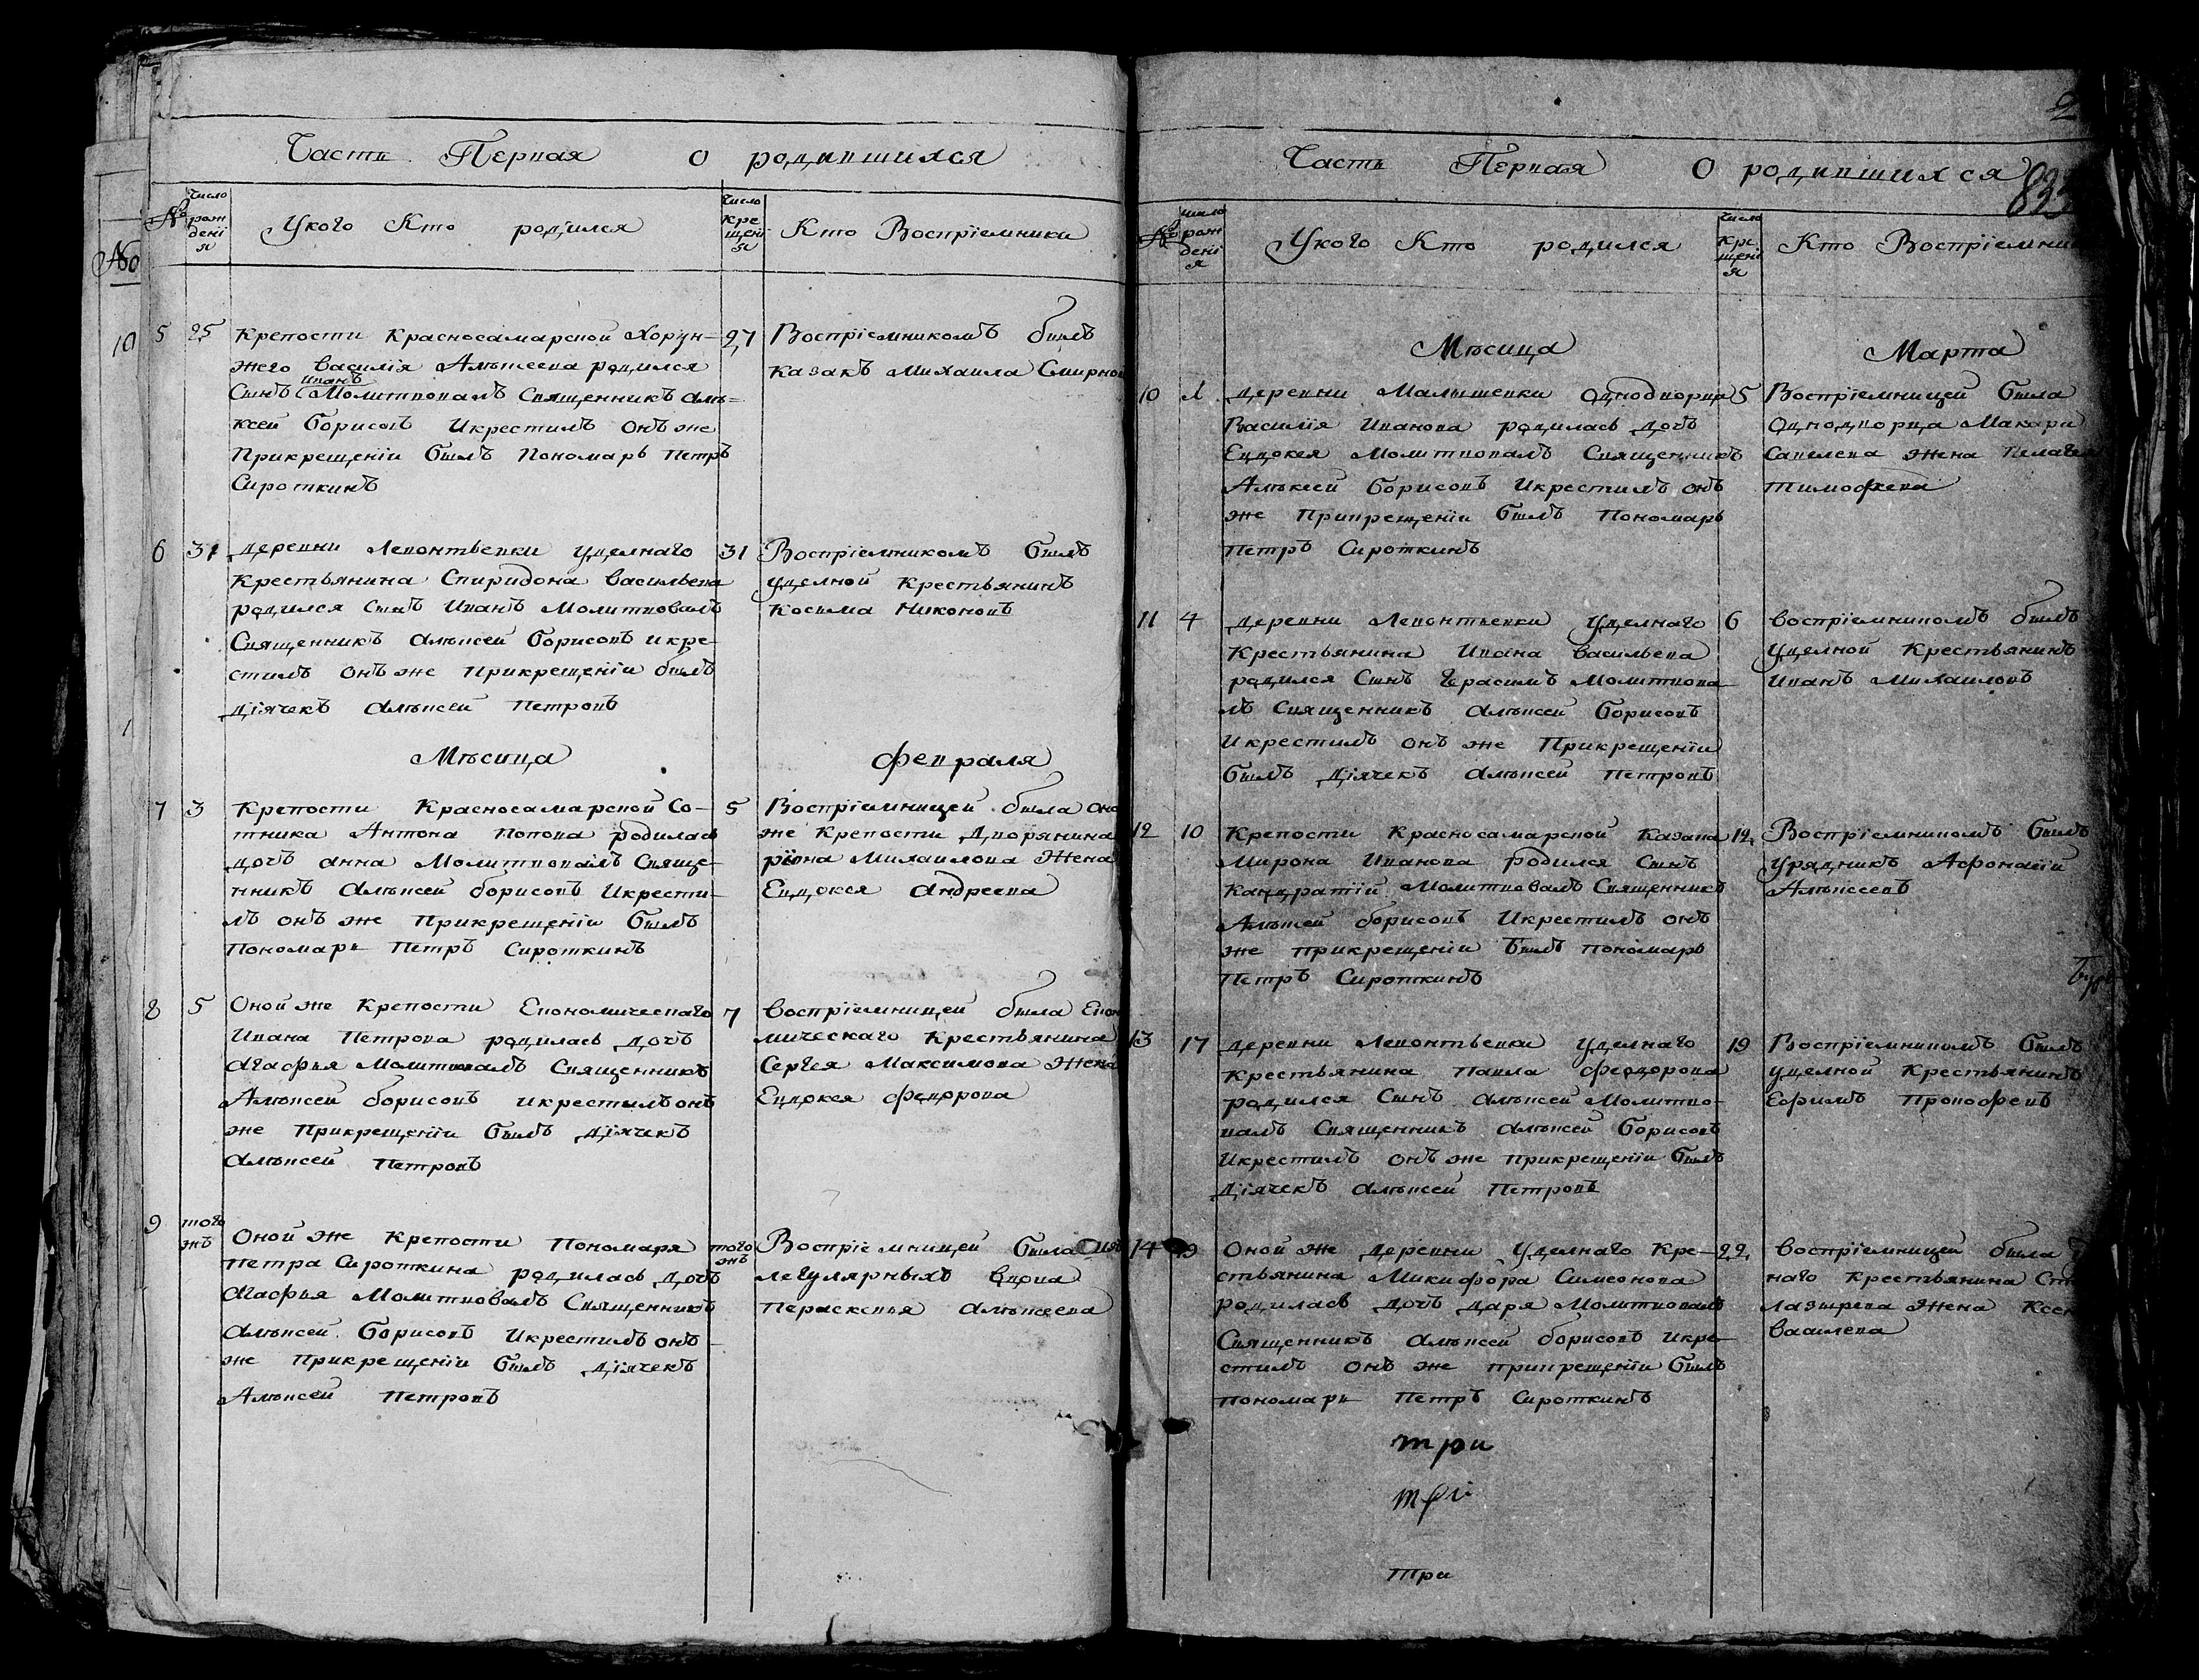 Часть Первая о родившихся
№
число рождения
У кого Кто родился
число крещения
Кто Восприемники
№
10
5 25 Крепости Красносамарской Хорун-
жего Василія Алѣксеева родился
Иванъ
Сынъ Молитвовалъ Священникъ Алѣ-
ксей Борисовъ Икрестилъ онъ же
Прикрещеніи былъ Пономарь Петръ
Сироткинъ
27 Воспріемникомъ былъ
казакъ Михаила Смирнов
6 31 деревни Левонтьевки удѣлнаго
Крестьянина Спиридона Васильева
родился Сынъ Иванъ Молитвовалъ
Священникъ Алѣксей Борисовъ икре-
стилъ онъ же Прикрещеніи былъ
Діячекъ Алѣксей Петровъ
31 Воспріемникомъ былъ
уделной Крестьянинъ
Косьма Никоновъ
Мѣсица Февраля
7 3 Крепости Красносамарской Со-
тника Антона Попова родилась
дочь Анна Молитвовалъ Свяще-
нникъ Алѣксей Борисовъ Икрести-
лъ онъ же Прикрещеніи былъ
Пономарь Петръ Сироткинъ
5 Воспріемницей была
же Крепости Дворянина
Михаилова Жена
Евдокея Андреева
8 5 Оной же Крепости Економическаго
Ивана Петрова родилась дочь
Агафья Молитвовалъ Священникъ
Алѣксей Борисовъ икрестилъ онъ
же Прикрещеніи былъ Діячекъ
Алѣксей Петровъ
7 воспріемницей была Екон
мическаго Крестьянина
Сергея Максимова Жена
Евдокея Федорова
9 того жъ Оной же Крепости Пономаря
Петра Сироткина родилась дочь
Агафья Молитвовалъ Священникъ
Алѣксей Борисовъ Икрестилъ онъ
же Прикрещеніи былъ Діячекъ
Алѣксей Петровъ
того жъ Воспріемницей была
легулярныхъ вдова
Параскевья Алѣксеева
Часть Первая О родившихся
№
число рождения
У кого Кто родился
число крещения
Кто Воспріемник
Мѣсица Марта
10 деревни Малышевки Однодворца
Василія Иванова родилась дочь
Евдокея Молитвовалъ Священникъ
Алѣксей Борисовъ Икрестилъ онъ
же Прикрещеніи былъ Пономарь
Петръ Сироткинъ
5 Воспріемницей была
Однодворца Макари
Савелева Жена Пелагея
Тимофеева
11 4 деревни Левонтьевки Уделнаго
Крестьянина Ивана Васильева
родился Сынъ Герасимъ Молитвова-
лъ Священникъ Алѣксей Борисовъ
Икрестилъ онъ же Прикрещеніи
былъ Діячекъ Алѣксей Петровъ
6 воспріемникомъ былъ
Уделной Крестьянинъ
Иванъ Михаиловъ
12 10 Крепости Красносамарской Казака
Мирона Иванова родился Сынъ
Кандратій Молитвовалъ Священникъ
Алѣксей Борисовъ Икрестилъ онъ
же прикрещеніи былъ пономарь
Петръ Сироткинъ
12 Воспріемникомъ былъ
Урядникъ Афонасій
Алѣксеевъ
13 17 деревни Левонтьевки Уделнаго
крестьянина Павла Феодорова
родился Сынъ Алѣксей Молитво-
валъ Священникъ Алѣксей Борисовъ
Икрестилъ онъ же прикрещеніи былъ
Діячекъ Алѣксей Петровъ
19 Воспріемникомъ былъ
уделной Крестьянинъ
Ефимъ Прокофевъ
14 Оной же деревни Уделнаго Кре-
стьянина Микифора Симеонова
родилась дочь Даря Молитвовалъ
Священникъ Алѣксей Борисовъ Икре-
стилъ онъ же прикрещеніи былъ
пономарь Петръ Сироткинъ
22 воспріемницей была
наго крестьянина
Лазырева Жена
Василева
три
три
три